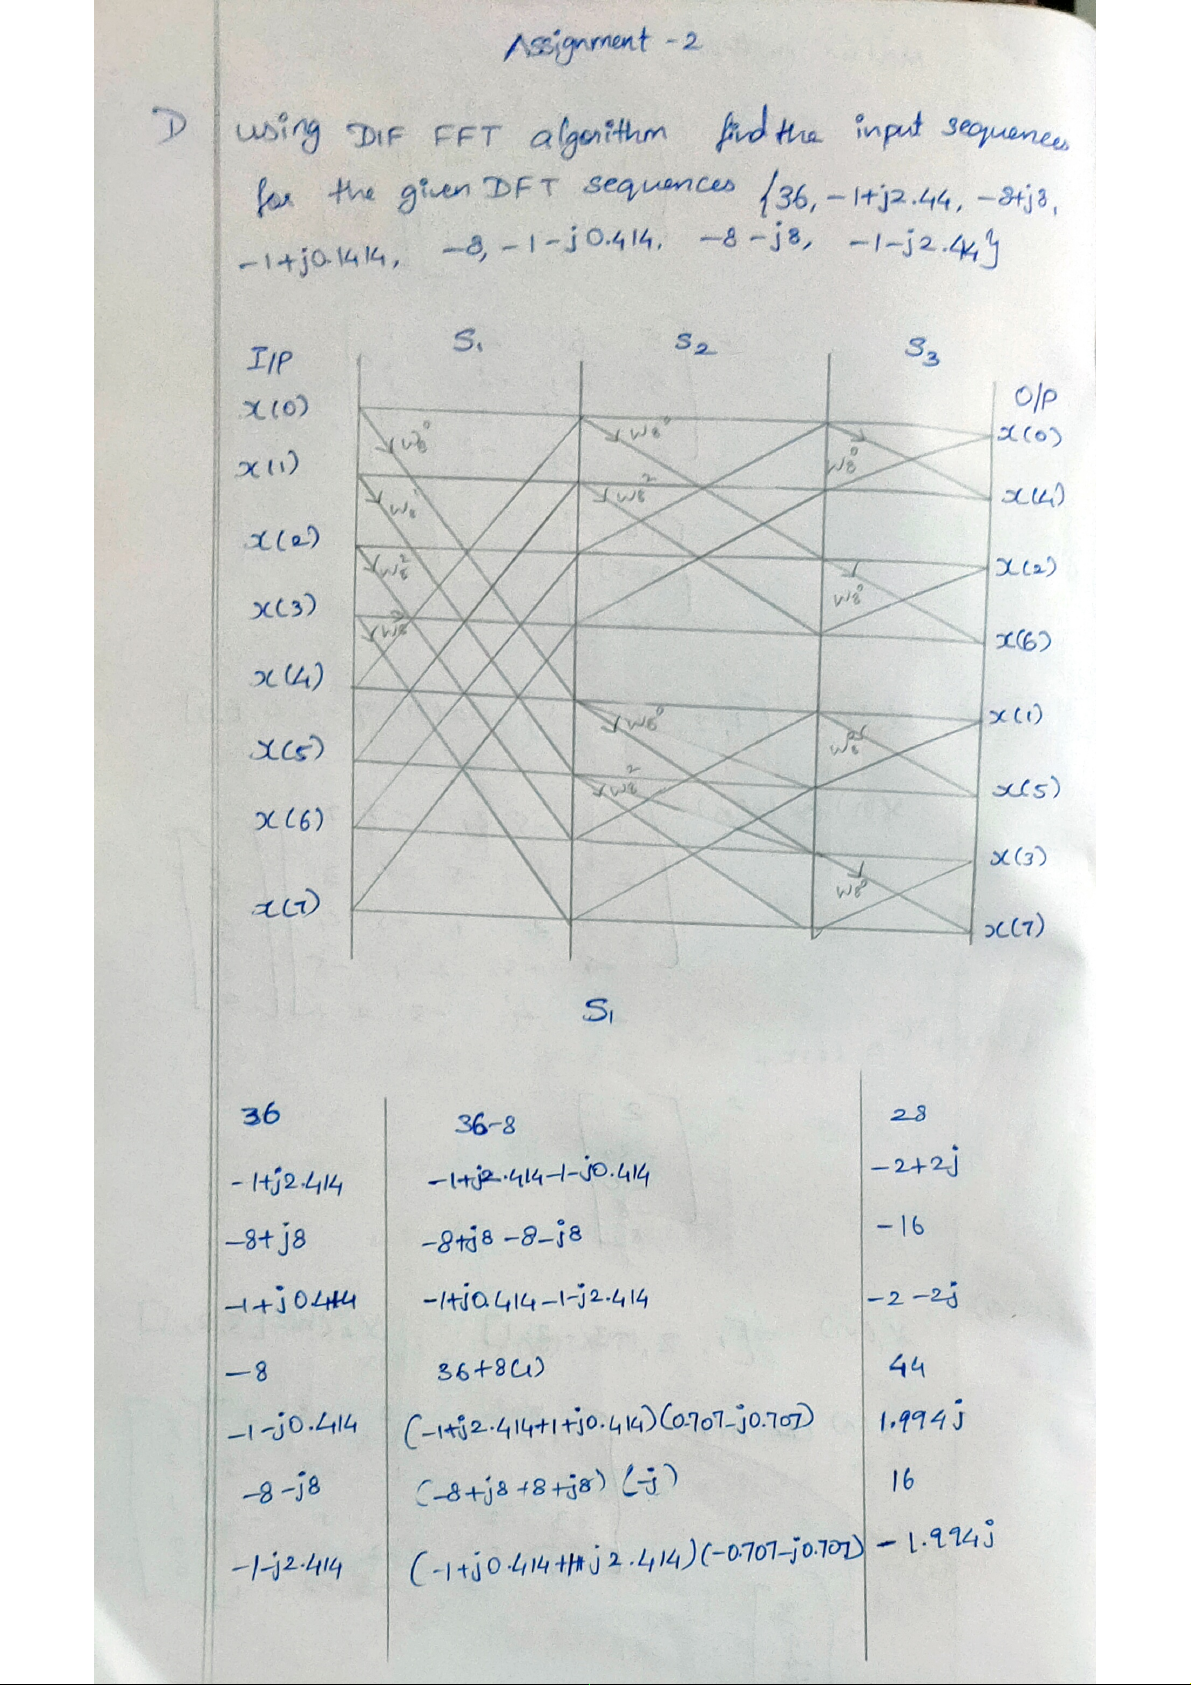 Assignment - 2
1) using DIF FFT algorithm find the input sequences
for the given DFT sequences {36, -1+j2.44, -8+j8,
-1+j0.1414, -8, -1-j0.414, -8-j8, -1-j2.44}
I/P S1 S2 S3
O/P
x(0) W8^0 W8^0 W8^0 x(0)
x(1) W8^1 W8^2 x(4)
x(2) W8^2 W8^0 x(2)
x(3) W8^3 x(6)
x(4) W8^0 W8^0 x(1)
x(5) W8^2 x(5)
x(6) W8^0 x(3)
x(7) x(7)
S1
36 36-8 28
-1+j2.414 -1+j2.414-1-j0.414 -2+2j
-8+j8 -8+j8-8-j8 -16
-1+j0.414 -1+j0.414-1-j2.414 -2-2j
-8 36+8(1) 44
-1-j0.414 (-1+j2.414+1+j0.414)(0.707-j0.707) 1.994j
-8-j8 (-8+j8+8+j8)(-j) 16
-1-j2.414 (-1+j0.414+1+j2.414)(-0.707-j0.707) -1.994j